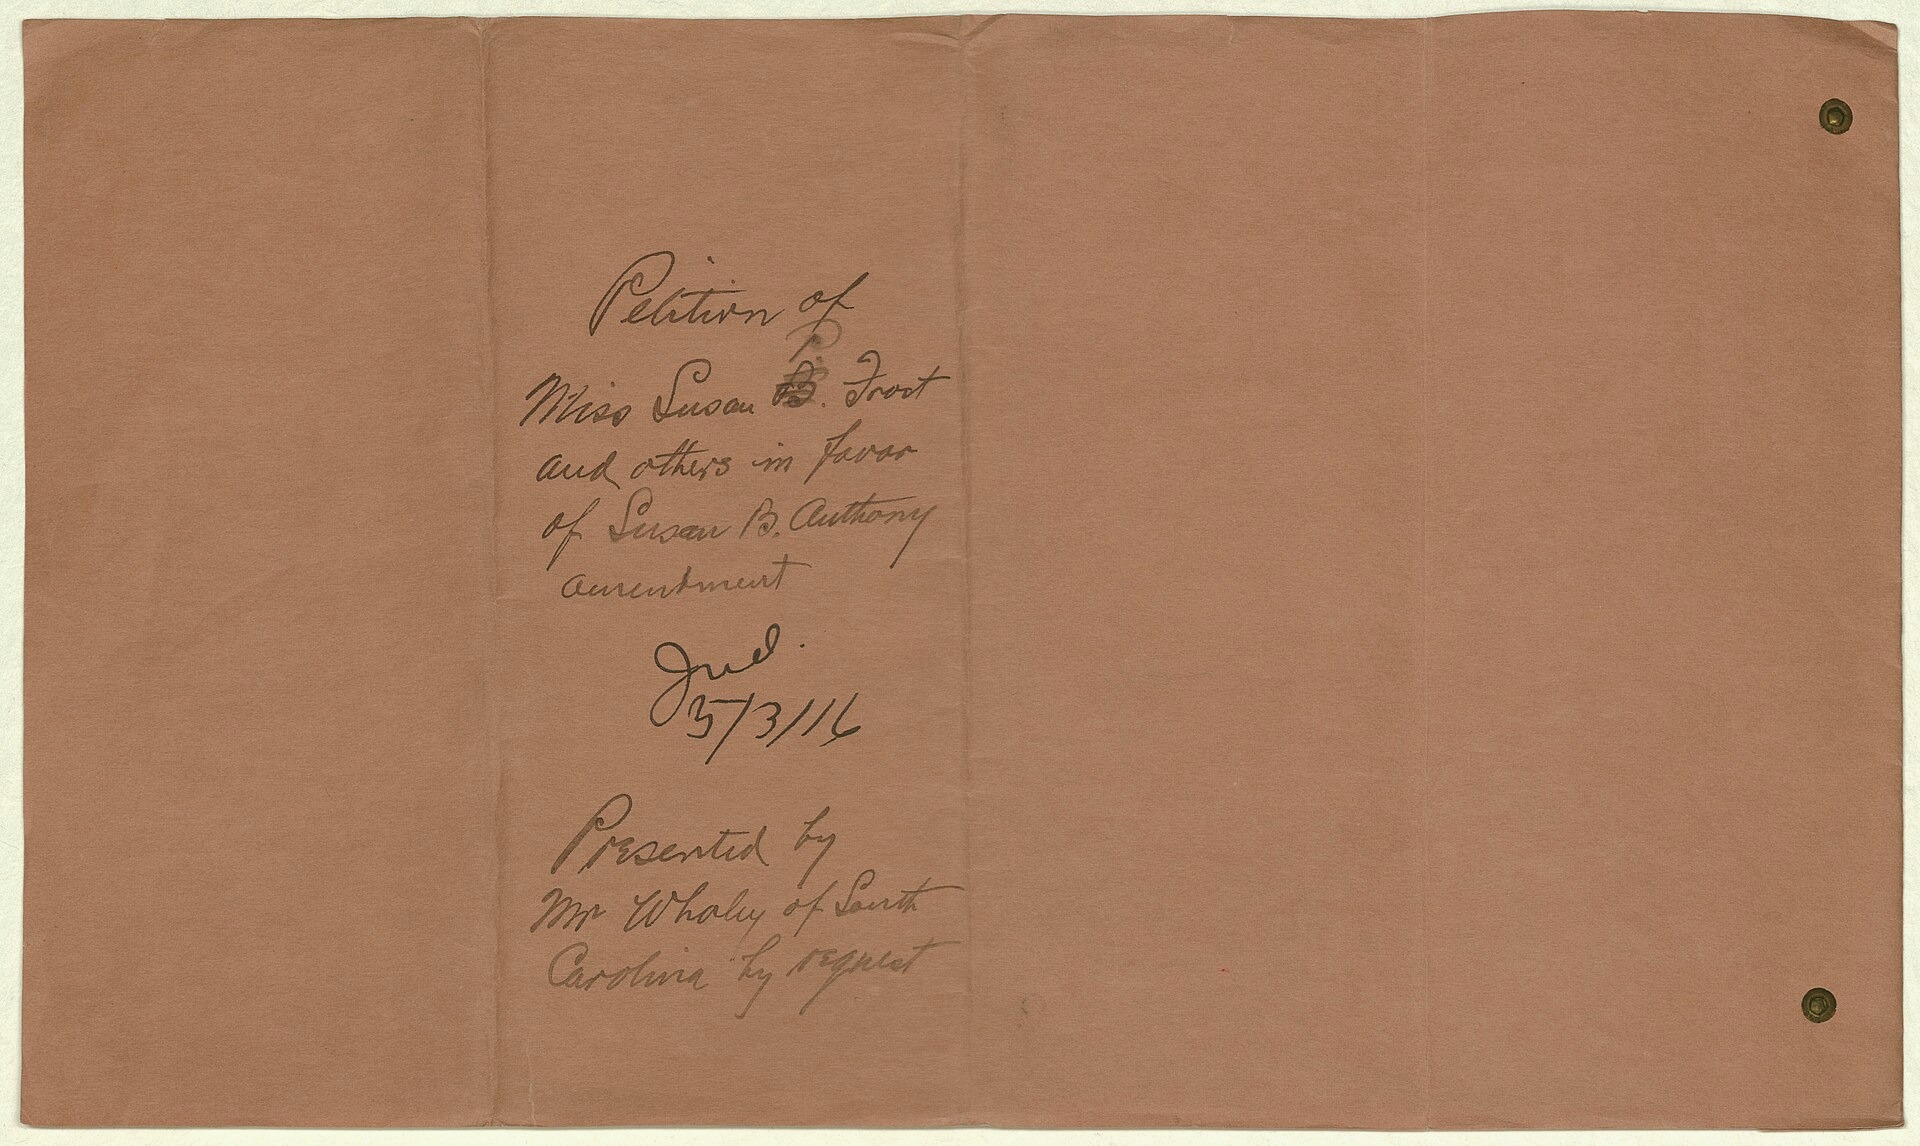 Petition of
P
Miss Susan B. Frost
and others in favor
of Susan B. Anthony
amendment
Jud.
5/3/16
Presented by
Mr Whaley of South
Carolina by request